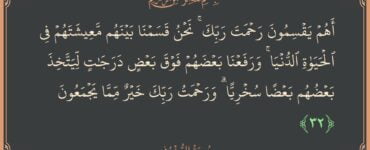 أَهُمْ يَقْسِمُونَ رَحْمَتَ رَبِّكَ ۚ نَحْنُ قَسَمْنَا بَيْنَهُم مَّعِيشَتَهُمْ فِى
ٱلْحَيَوٰةِ ٱلدُّنْيَا ۚ وَرَفَعْنَا بَعْضَهُمْ فَوْقَ بَعْضٍ دَرَجَـٰتٍ لِّيَتَّخِذَ
بَعْضُهُم بَعْضًا سُخْرِيًّا ۗ وَرَحْمَتُ رَبِّكَ خَيْرٌ مِّمَّا يَجْمَعُونَ
﴿٣٢﴾